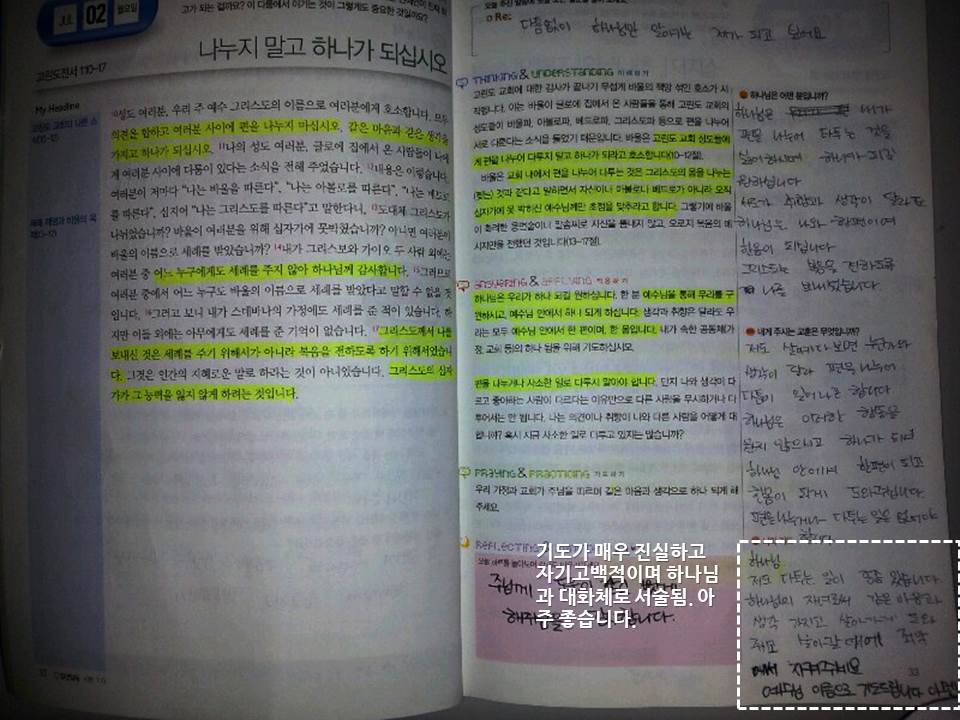 JUL 02 월요일
고가 되는 걸까요? 이 다툼에서 이기는 것이 그렇게도 중요한 것일까요?
나누지 말고 하나가 되십시오
고린도전서 1:10-17
My Headline
10성도 여러분, 우리 주 예수 그리스도의 이름으로 여러분에게 호소합니다. 모두
의견을 합하고 여러분 사이에 편을 나누지 마십시오. 같은 마음과 같은 생각을
가지고 하나가 되십시오. 11나의 성도 여러분, 글로에 집에서 온 사람들이 나에
게 여러분 사이에 다툼이 있다는 소식을 전해 주었습니다. 12내용은 이렇습니다.
여러분이 저마다 “나는 바울을 따른다”, “나는 아볼로를 따른다”, “나는 베드로
를 따른다”, 심지어 “나는 그리스도를 따른다”라고 말한다니, 13도대체 그리스도가
나뉘었습니까? 바울이 여러분을 위해 십자가에 못박혔습니까? 아니면 여러분이
바울의 이름으로 세례를 받았습니까? 14내가 그리스보와 가이오 두 사람 외에는
여러분 중 어느 누구에게도 세례를 주지 않아 하나님께 감사합니다. 15그러므로
여러분 중에서 어느 누구도 바울의 이름으로 세례를 받았다고 말할 수 없을 것
입니다. 16그러고 보니 내가 스데바나의 가정에도 세례를 준 적이 있습니다. 하
지만 이들 외에는 아무에게도 세례를 준 기억이 없습니다. 17그리스도께서 나를
보내신 것은 세례를 주기 위해서가 아니라 복음을 전하도록 하기 위해서였습니
다. 그것은 인간의 지혜로운 말로 하라는 것이 아니었습니다. 그리스도의 십자
가가 그 능력을 잃지 않게 하려는 것입니다.
Re:
다툼없이 하나님만 알아가는 제가 되고 싶어요
THINKING & UNDERSTANDING 이해하기
고린도 교회에 대한 감사가 끝나기 무섭게 바울의 책망 섞인 호소가 시
작됩니다. 이는 바울이 글로에 집에서 온 사람들을 통해 고린도 교회의
성도들이 바울파, 아볼로파, 베드로파, 그리스도파 등으로 편을 나누어
서로 다툰다는 소식을 들었기 때문입니다. 바울은 고린도 교회 성도들에
게 편을 나누어 다투지 말고 하나가 되라고 호소합니다(10-12절).
바울은 교회 내에서 편을 나누어 다투는 것은 그리스도의 몸을 나누는
(찢는) 것과 같다고 말하면서 자신이나 아볼로나 베드로가 아니라 오직
십자가에 못 박히신 예수님께만 초점을 맞추라고 합니다. 그렇기에 바울
이 화려한 웅변술이나 말솜씨로 자신을 뽐내지 않고, 오로지 복음의 메
시지만을 전했던 것입니다(13-17절).
ANSWERING & APPLYING 적용하기
하나님은 우리가 하나 되길 원하십니다. 한 분 예수님을 통해 우리를 구
원하시고, 예수님 안에서 하나 되게 하십니다. 생각과 취향은 달라도 우
리는 모두 예수님 안에서 한 편이며, 한 몸입니다. 내가 속한 공동체(가
정, 교회 등)의 하나 됨을 위해 기도하십시오.
편을 나누거나 사소한 일로 다투지 말아야 합니다. 단지 나와 생각이 다
르고 좋아하는 사람이 다르다는 이유만으로 다른 사람을 무시하거나 다
투어서는 안 됩니다. 나는 의견이나 취향이 나와 다른 사람을 어떻게 대
합니까? 혹시 지금 사소한 일로 다투고 있지는 않습니까?
PRAYING & PRACTICING 기도하기
우리 가정과 교회가 주님을 따르며 같은 마음과 생각으로 하나 되게 해
주세요.
REFLECTING
주님께
해주심을 합니다.
하나님은 어떤 분입니까?
하나님은 너가
편을 나누어 다투는 것을
싫어하시며 하나가 되길
원하십니다
서로가 취향과 생각이 달라도
하나님은 나와 한편이며
한몸이 되십니다
그리스도는 복음을 전하도록
나를 보내셨습니다.
내게 주시는 교훈은 무엇입니까?
저도 살다보면 누군가와
생각이 달라 편을 나누어
다툼이 일어나곤 합니다
하나님은 이러한 행동을
원치 않으시고 하나가 되어
하나님 안에서 한편이 되고
한몸이 되게 도와주십니다.
편을 나누거나 다투는 일은 없어야
기도가 매우 진실하고
자기고백적이며 하나님
과 대화체로 서술됨. 아
주 좋습니다.
하나님
저도 다투는 일이 종종 있습니다
하나님의 자녀로써 같은 마음과
생각 가지고 살아가게 도와
주시고 살아갈 때에
지켜주세요
예수님 이름으로 기도드립니다 아멘
33